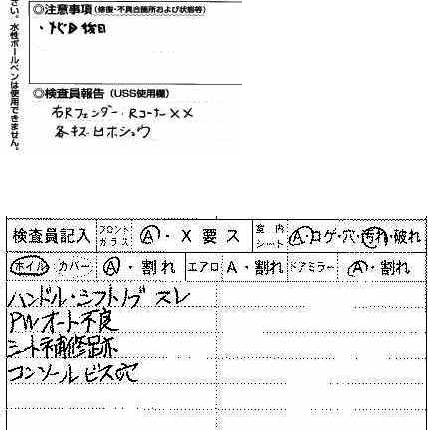 さい。水性ボールペンは使用できません。
◎注意事項（修復・不具合箇所および状態等）
◎検査員報告（USS使用欄）
右Rフェンダー・RコーナーXX
各キズ凹ホシュウ
検査員記入 フロントガラス Ⓐ・X 要 ス 室内シート A・コゲ・穴・汚れ・破れ
ホイル カバー Ⓐ・割れ エアロ A・割れ ドアミラー Ⓐ・割れ
ハンドル・シフトノブ スレ
PWオート不良
シート補修跡
コンソールビス穴